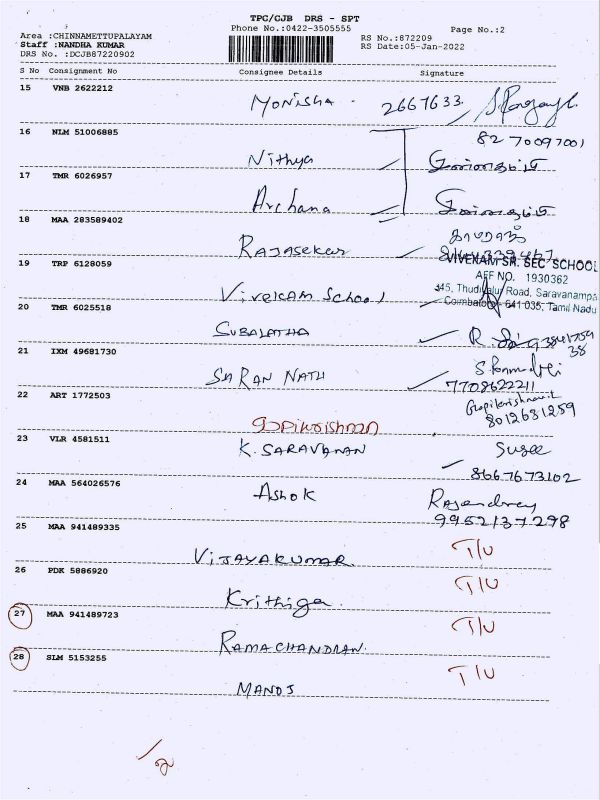 TPC/CJB DRS - SPT
Phone No.:0422-3505555
Page No.:2
Area :CHINNAMETTUPALAYAM
Staff :NANDHA KUMAR
DRS No. :DCJB87220902
RS No.:872209
RS Date:05-Jan-2022
S No Consignment No Consignee Details Signature
15 VNB 2622212
Monisha. 2667633
16 NLM 51006885
8270097001
Nithya
17 TMR 6026957
Archana
18 MAA 283589402
Rajasekar
19 TRP 6128059
VIVEKAM SR. SEC SCHOOL
AFF NO. 1930362
Vivekam School
Road, Saravanampa
20 TMR 6025518
Coimbatore - 641 035, Tamil Nadu
SUBALATHA
21 IXM 49681730
SARAN NATH
7708622211
22 ART 1772503
8012631259
Gopikrishnan
23 VLR 4581511
K. SARAVANAN
Susee
8667673102
24 MAA 564026576
Ashok
9952137298
25 MAA 941489335
VIJAYAKUMAR T/U
26 PDK 5886920
Krithiga. T/U
27 MAA 941489723
RAMACHANDRAN. T/U
28 SLM 5153255
MANOJ T/U